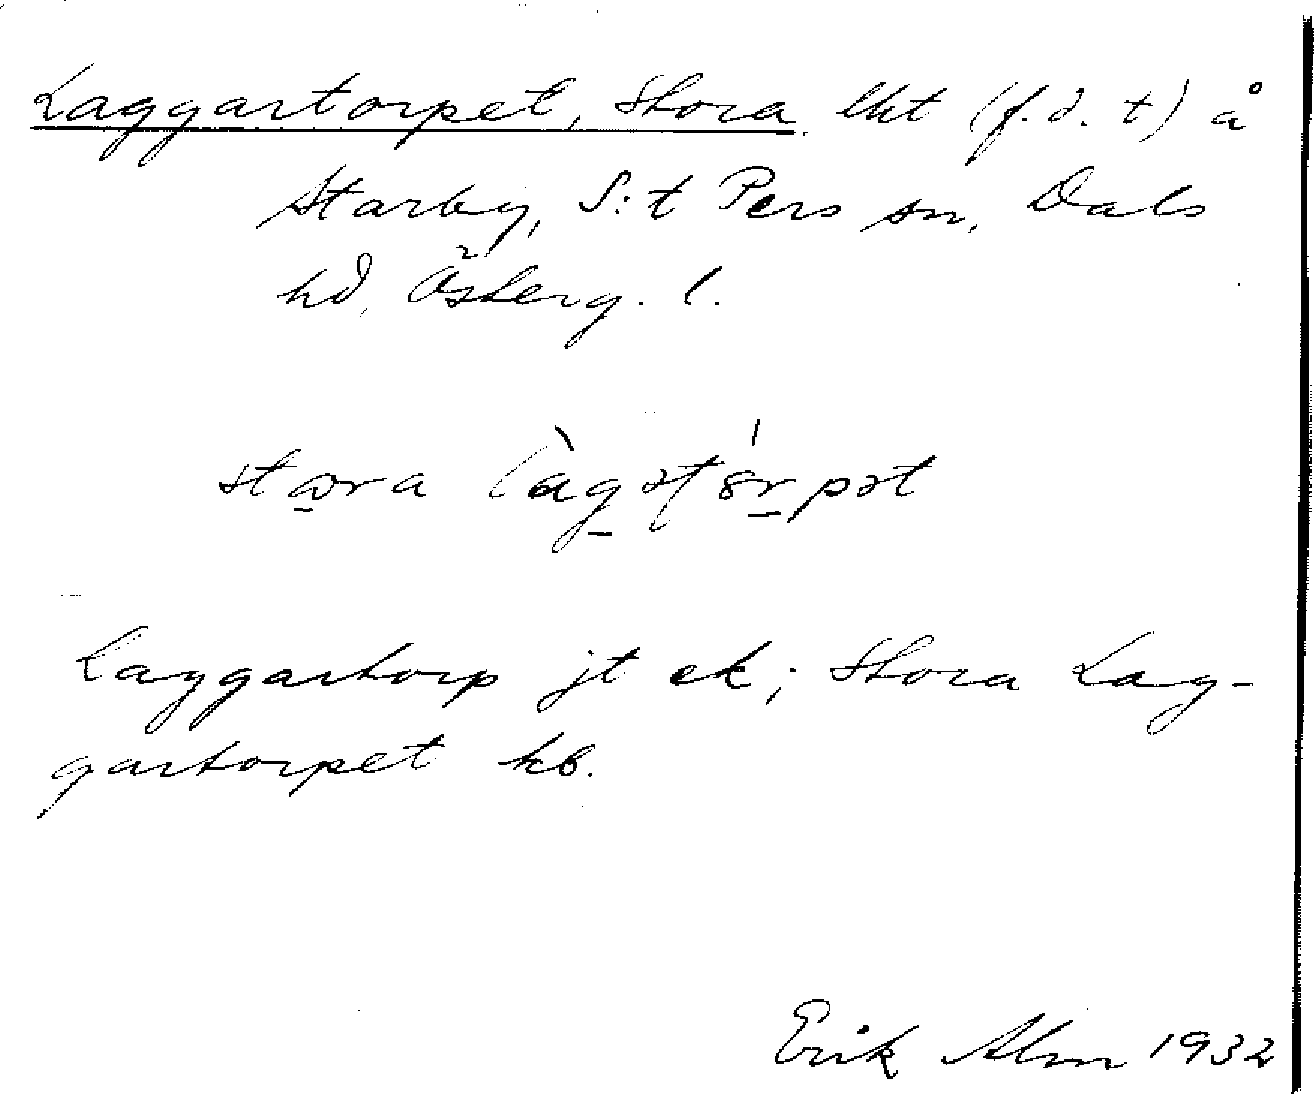 Laggartorpet, Stora. lht (f.d. t) å
Starby, S:t Pers sn, Dals
hd, Österg. l.
stⱺra làgətórpət
Laggartorp jt ek; Stora Lag-
gartorpet kb.
Erik Alm 1932